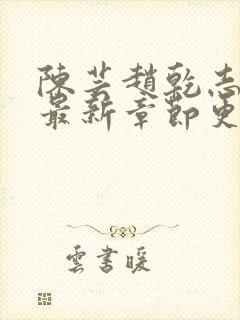 陳芸趙乾志
最新章節更
雲書暖